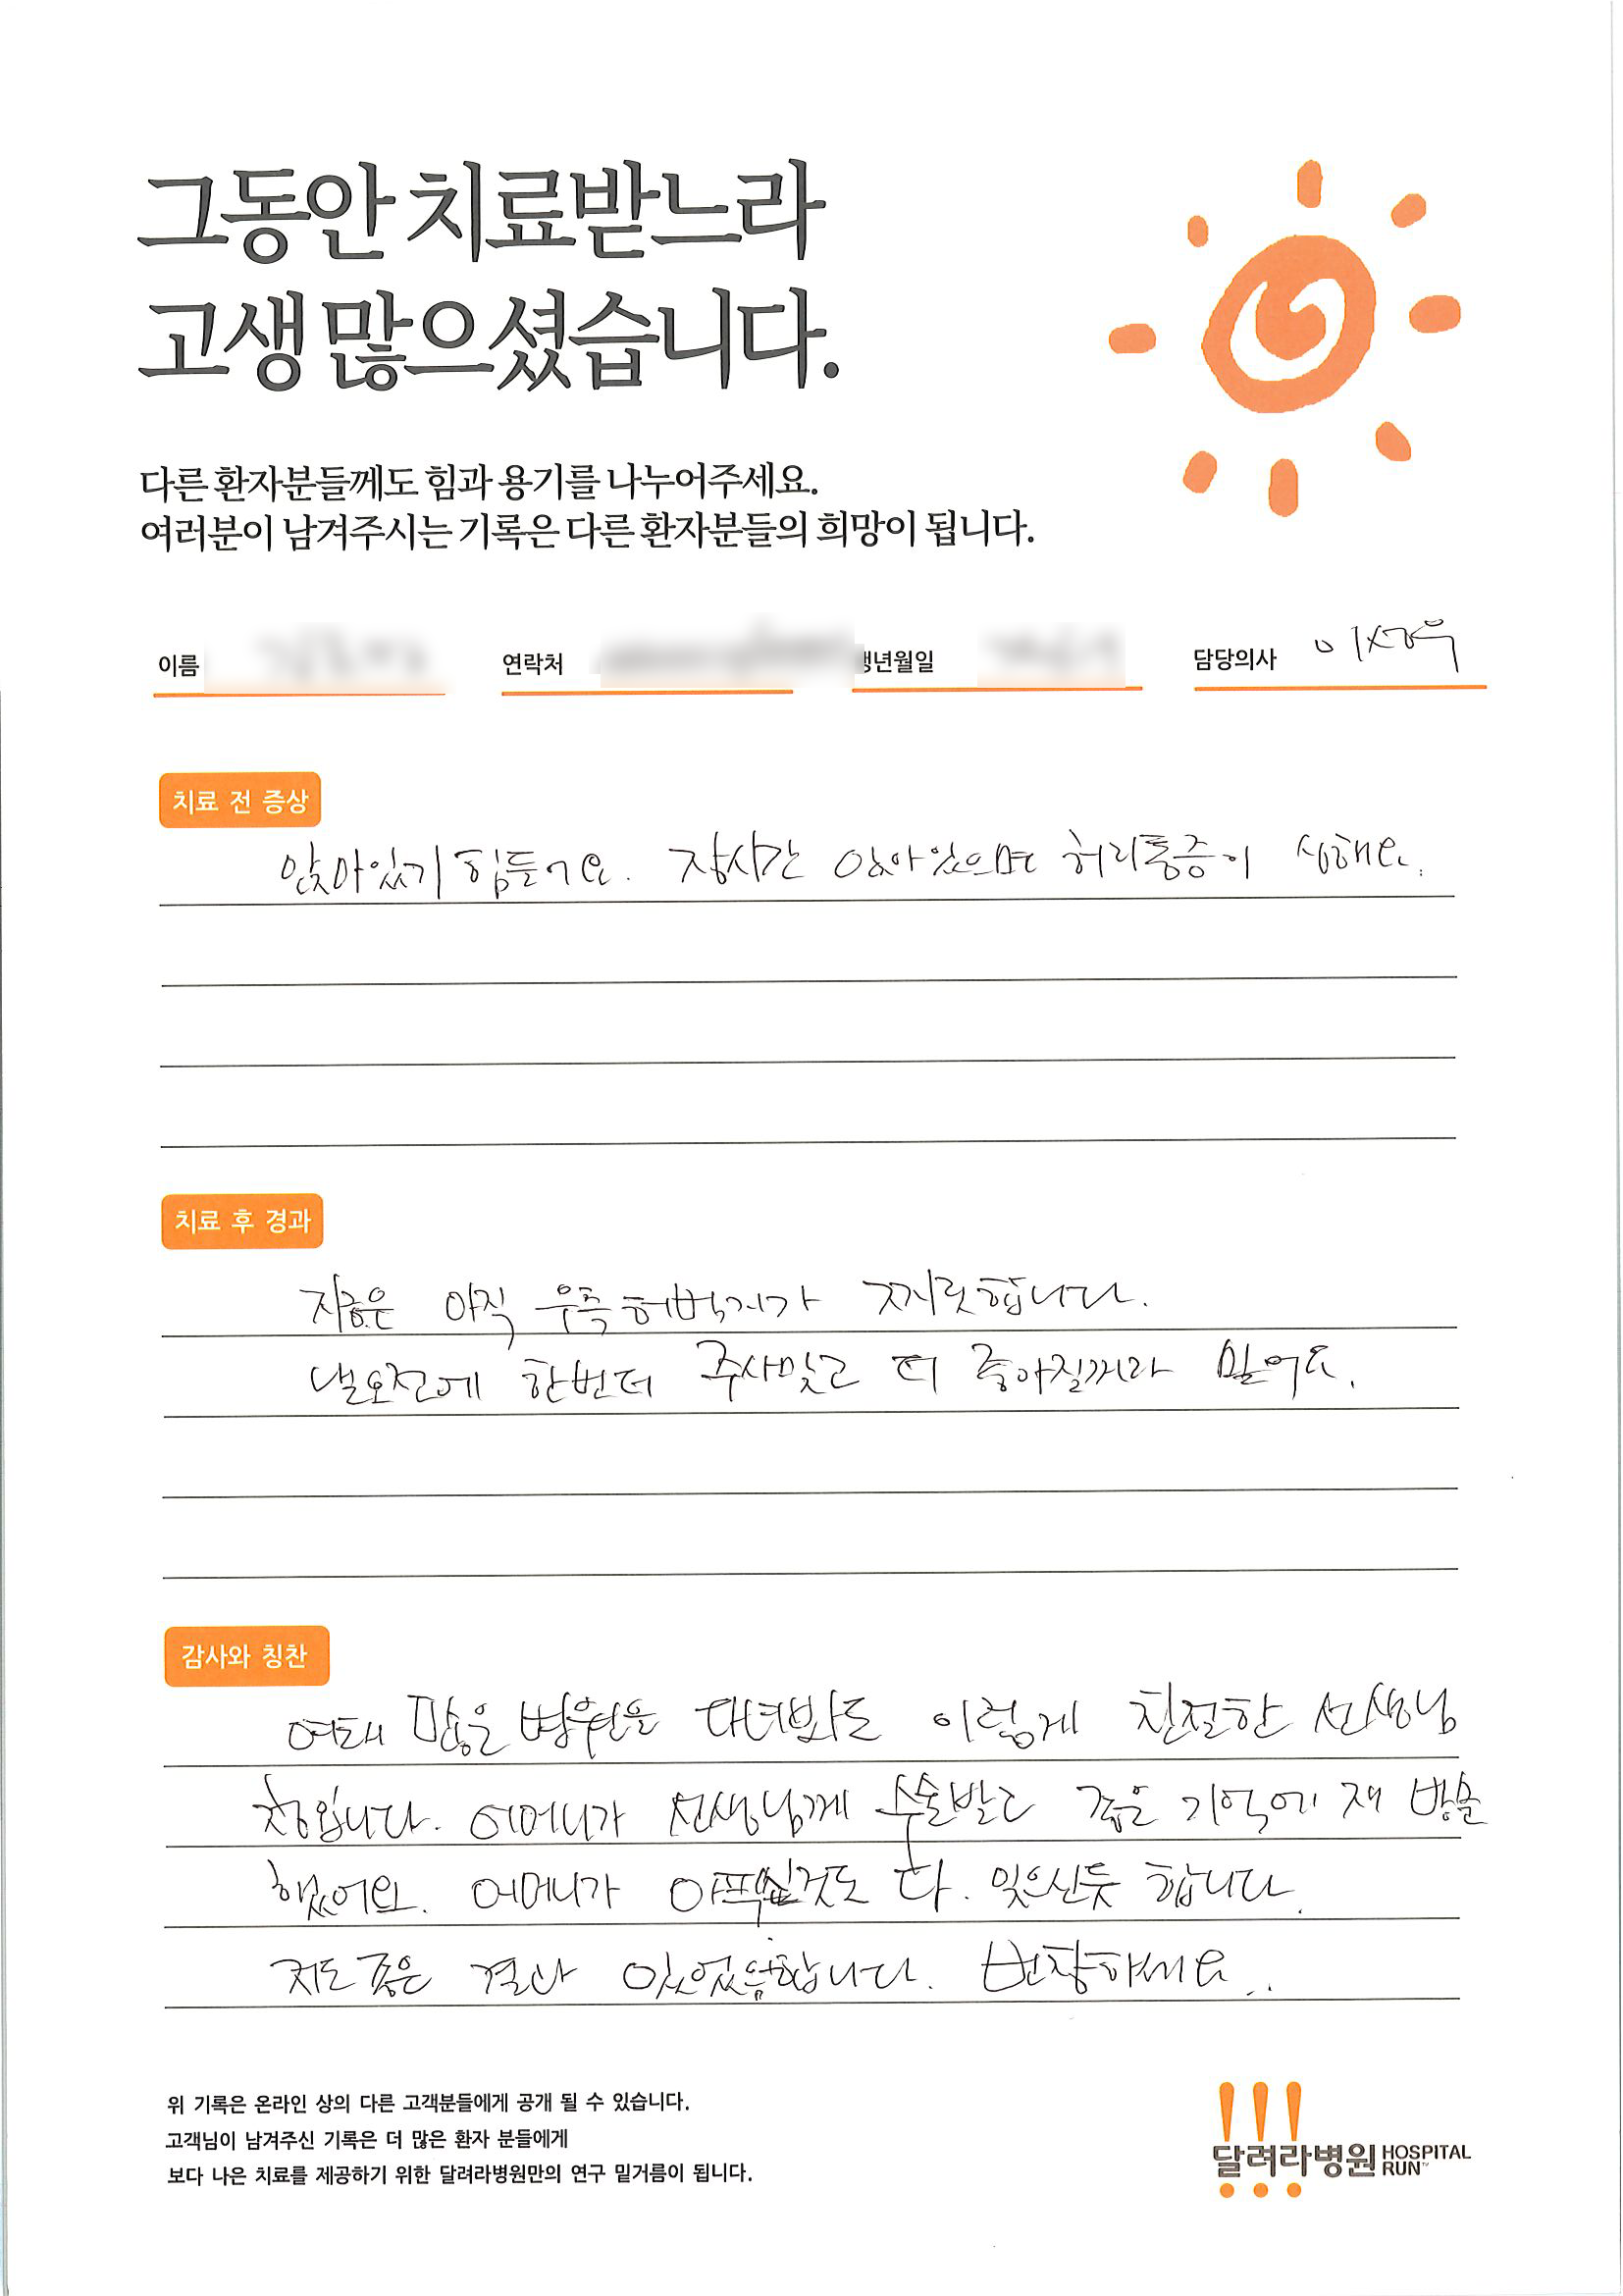 그동안 치료받느라
고생 많으셨습니다.
다른 환자분들께도 힘과 용기를 나누어주세요.
여러분이 남겨주시는 기록은 다른 환자분들의 희망이 됩니다.
이름 연락처 생년월일 담당의사
치료 전 증상
앉아있기 힘들어요. 장시간 앉아있으며 허리통증이 심해요.
치료 후 경과
지금은 아직 우측허벅지가 찌릿합니다.
낼오전에 한번더 주사맞고 더 좋아질꺼라 믿어요.
감사와 칭찬
여태 많은 병원을 다녀봐도 이렇게 친절한 선생님
첨입니다. 어머니가 선생님께 수술받고 좋은 기억에 재 방문
했어요. 어머니가 아프신것도 다. 잊으신듯 합니다.
저도 좋은 결과 있었음합니다. 번창하세요..
위 기록은 온라인 상의 다른 고객분들에게 공개 될 수 있습니다.
고객님이 남겨주신 기록은 더 많은 환자 분들에게
보다 나은 치료를 제공하기 위한 달려라병원만의 연구 밑거름이 됩니다.
달려라병원 HOSPITAL
RUN